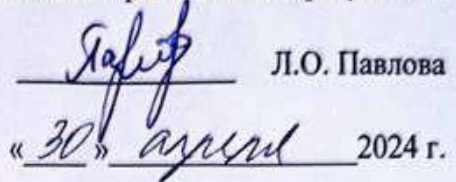 Л.О. Павлова
«30» апреля 2024 г.